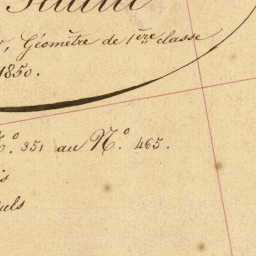 , Géomètre de 1ère classe
1850.
N.° 351 au N.° 465.
is